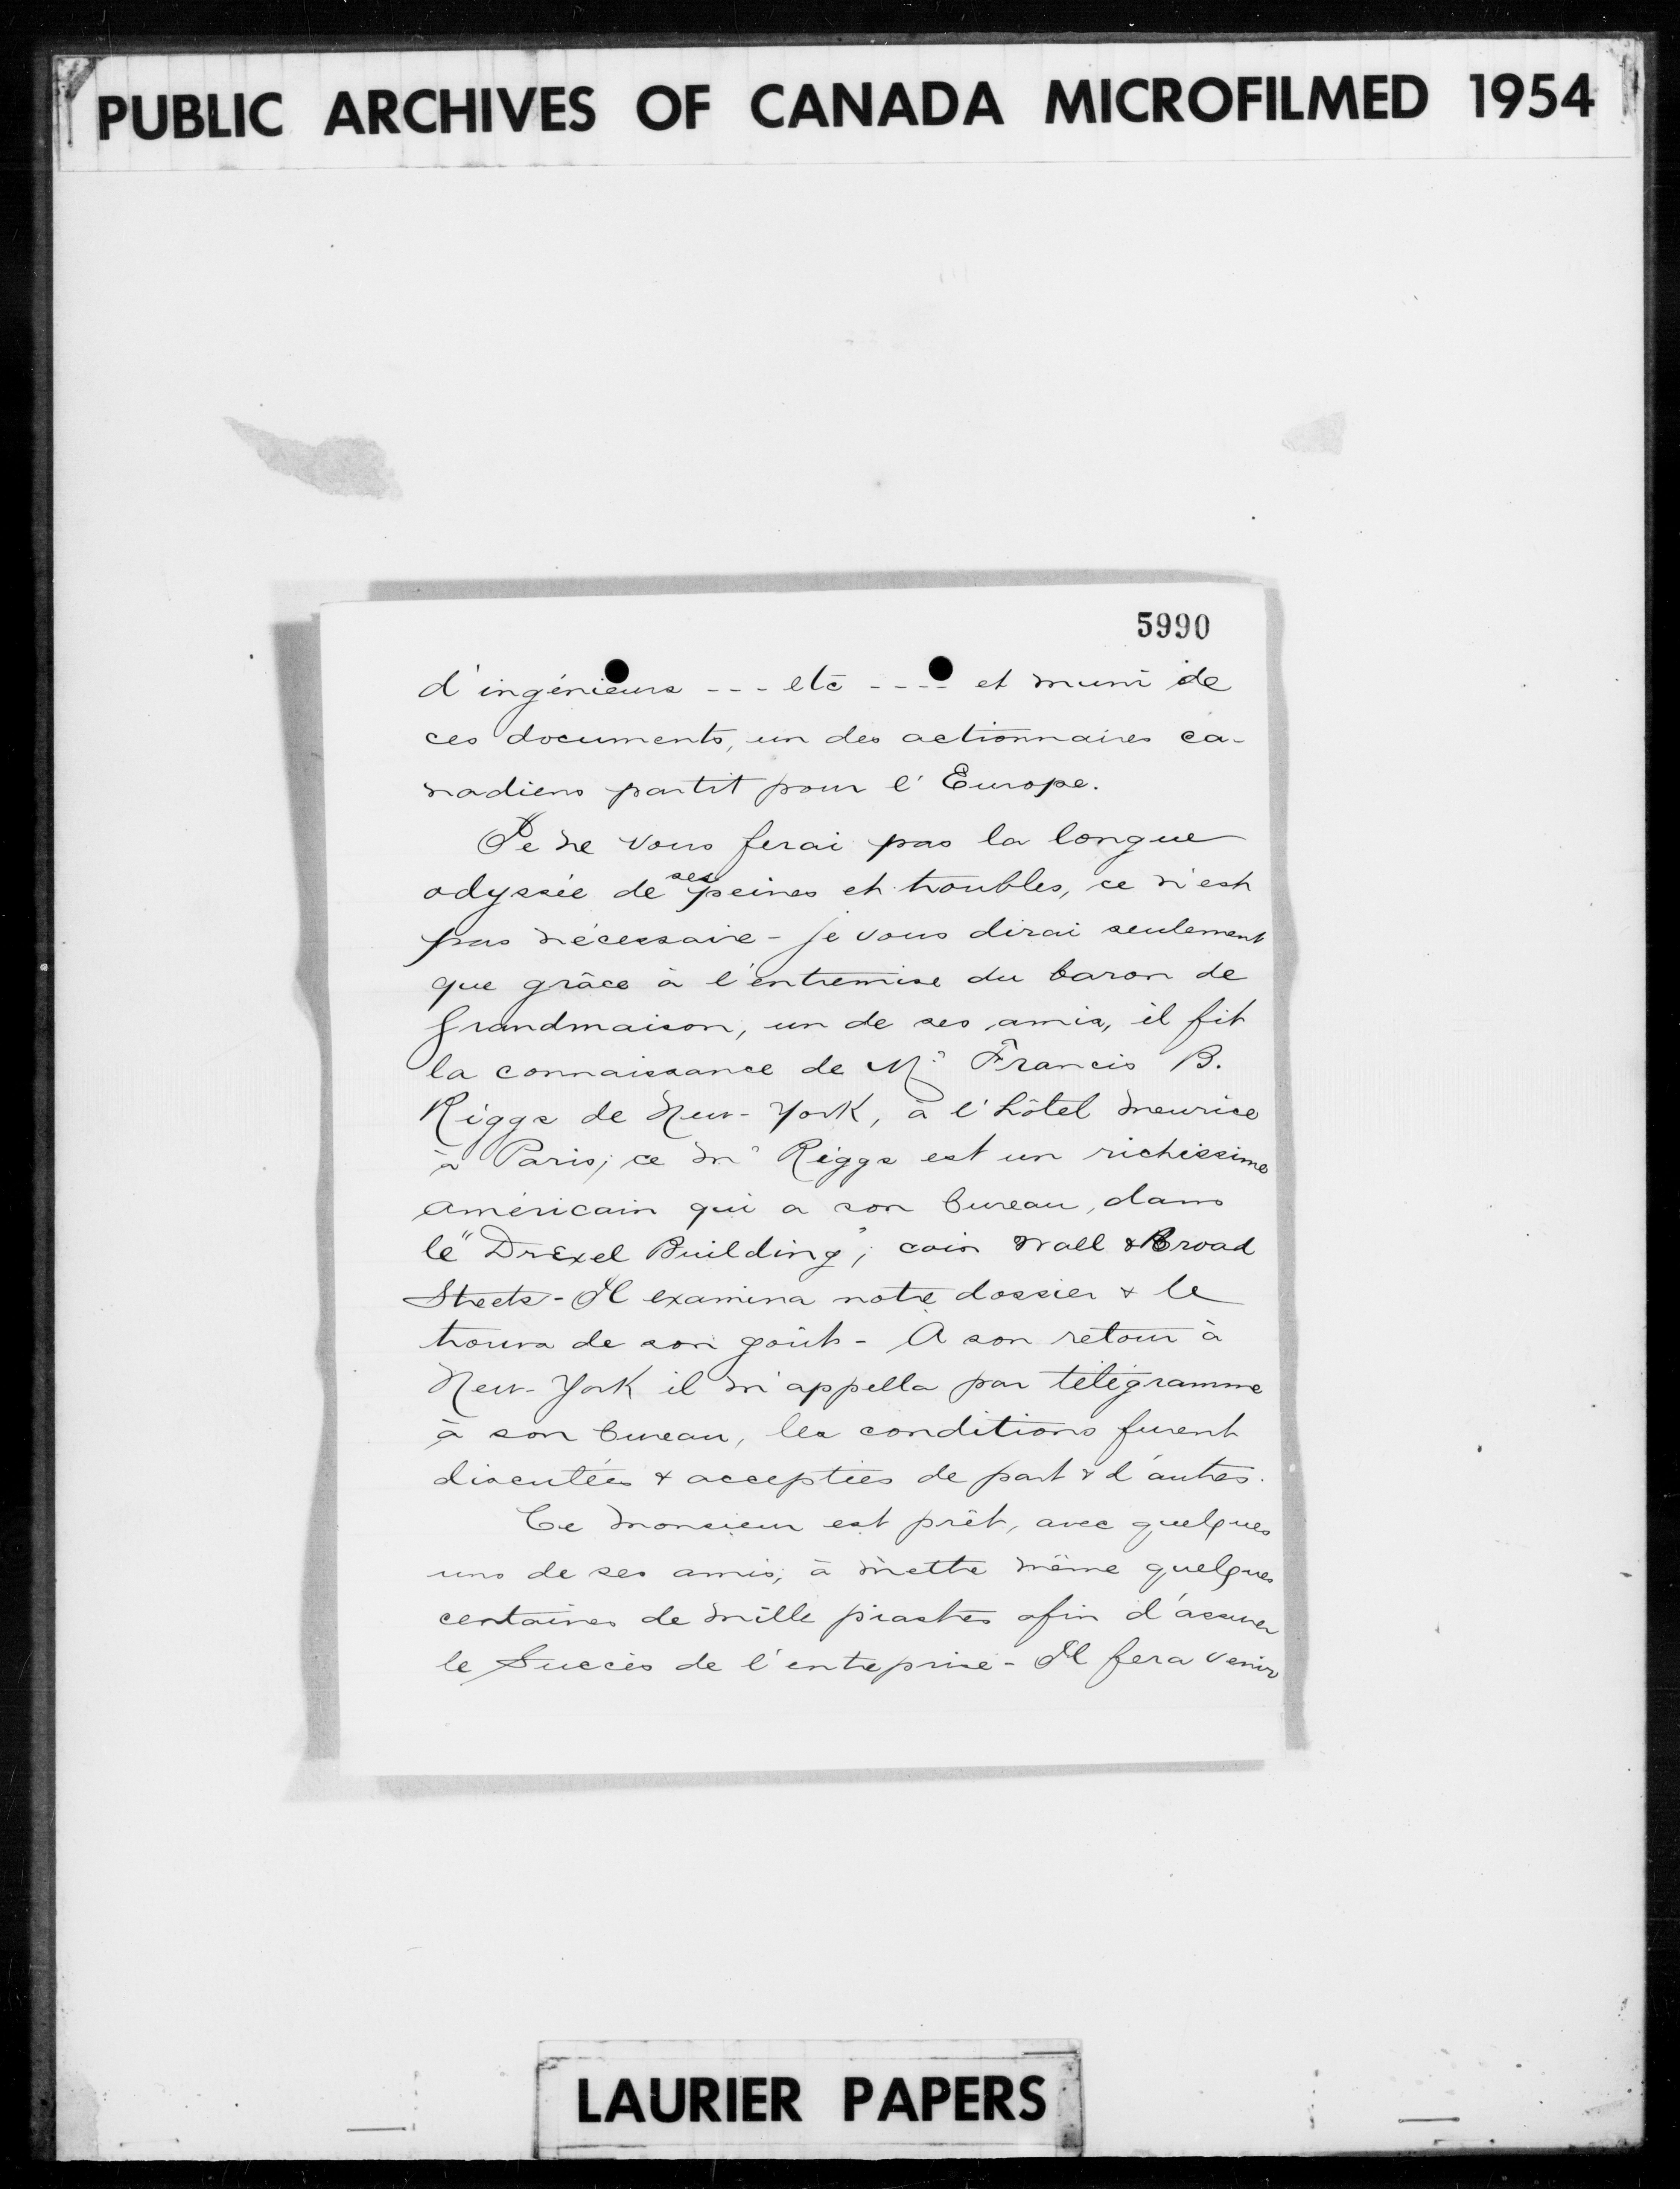 PUBLIC ARCHIVES OF CANADA MICROFILMED 1954
5990
d'ingénieurs --- etc ---- et muni de
ces documents, un des actionnaires ca-
nadiens partit pour l'Europe.
Je ne vous ferai pas la longue
odyssée de ses peines et troubles, ce n'est
pas nécessaire - je vous dirai seulement
que grâce à l'entremise du baron de
Grandmaison, un de ses amis, il fit
la connaissance de Mr Francis B.
Riggs de New-York, à l'hôtel Meurice
à Paris; ce Mr Riggs est un richissime
américain qui a son bureau, dans
le "Drexel Building", coin Wall & Broad
Streets - Il examina notre dossier & le
trouva de son goût - A son retour à
New-York il m'appella par télégramme
à son bureau, les conditions furent
discutées & acceptées de part & d'autres.
Ce monsieur est prêt, avec quelques
uns de ses amis, à mettre même quelques
centaines de mille piastres afin d'assurer
le succès de l'entreprise - Il fera venir
LAURIER PAPERS